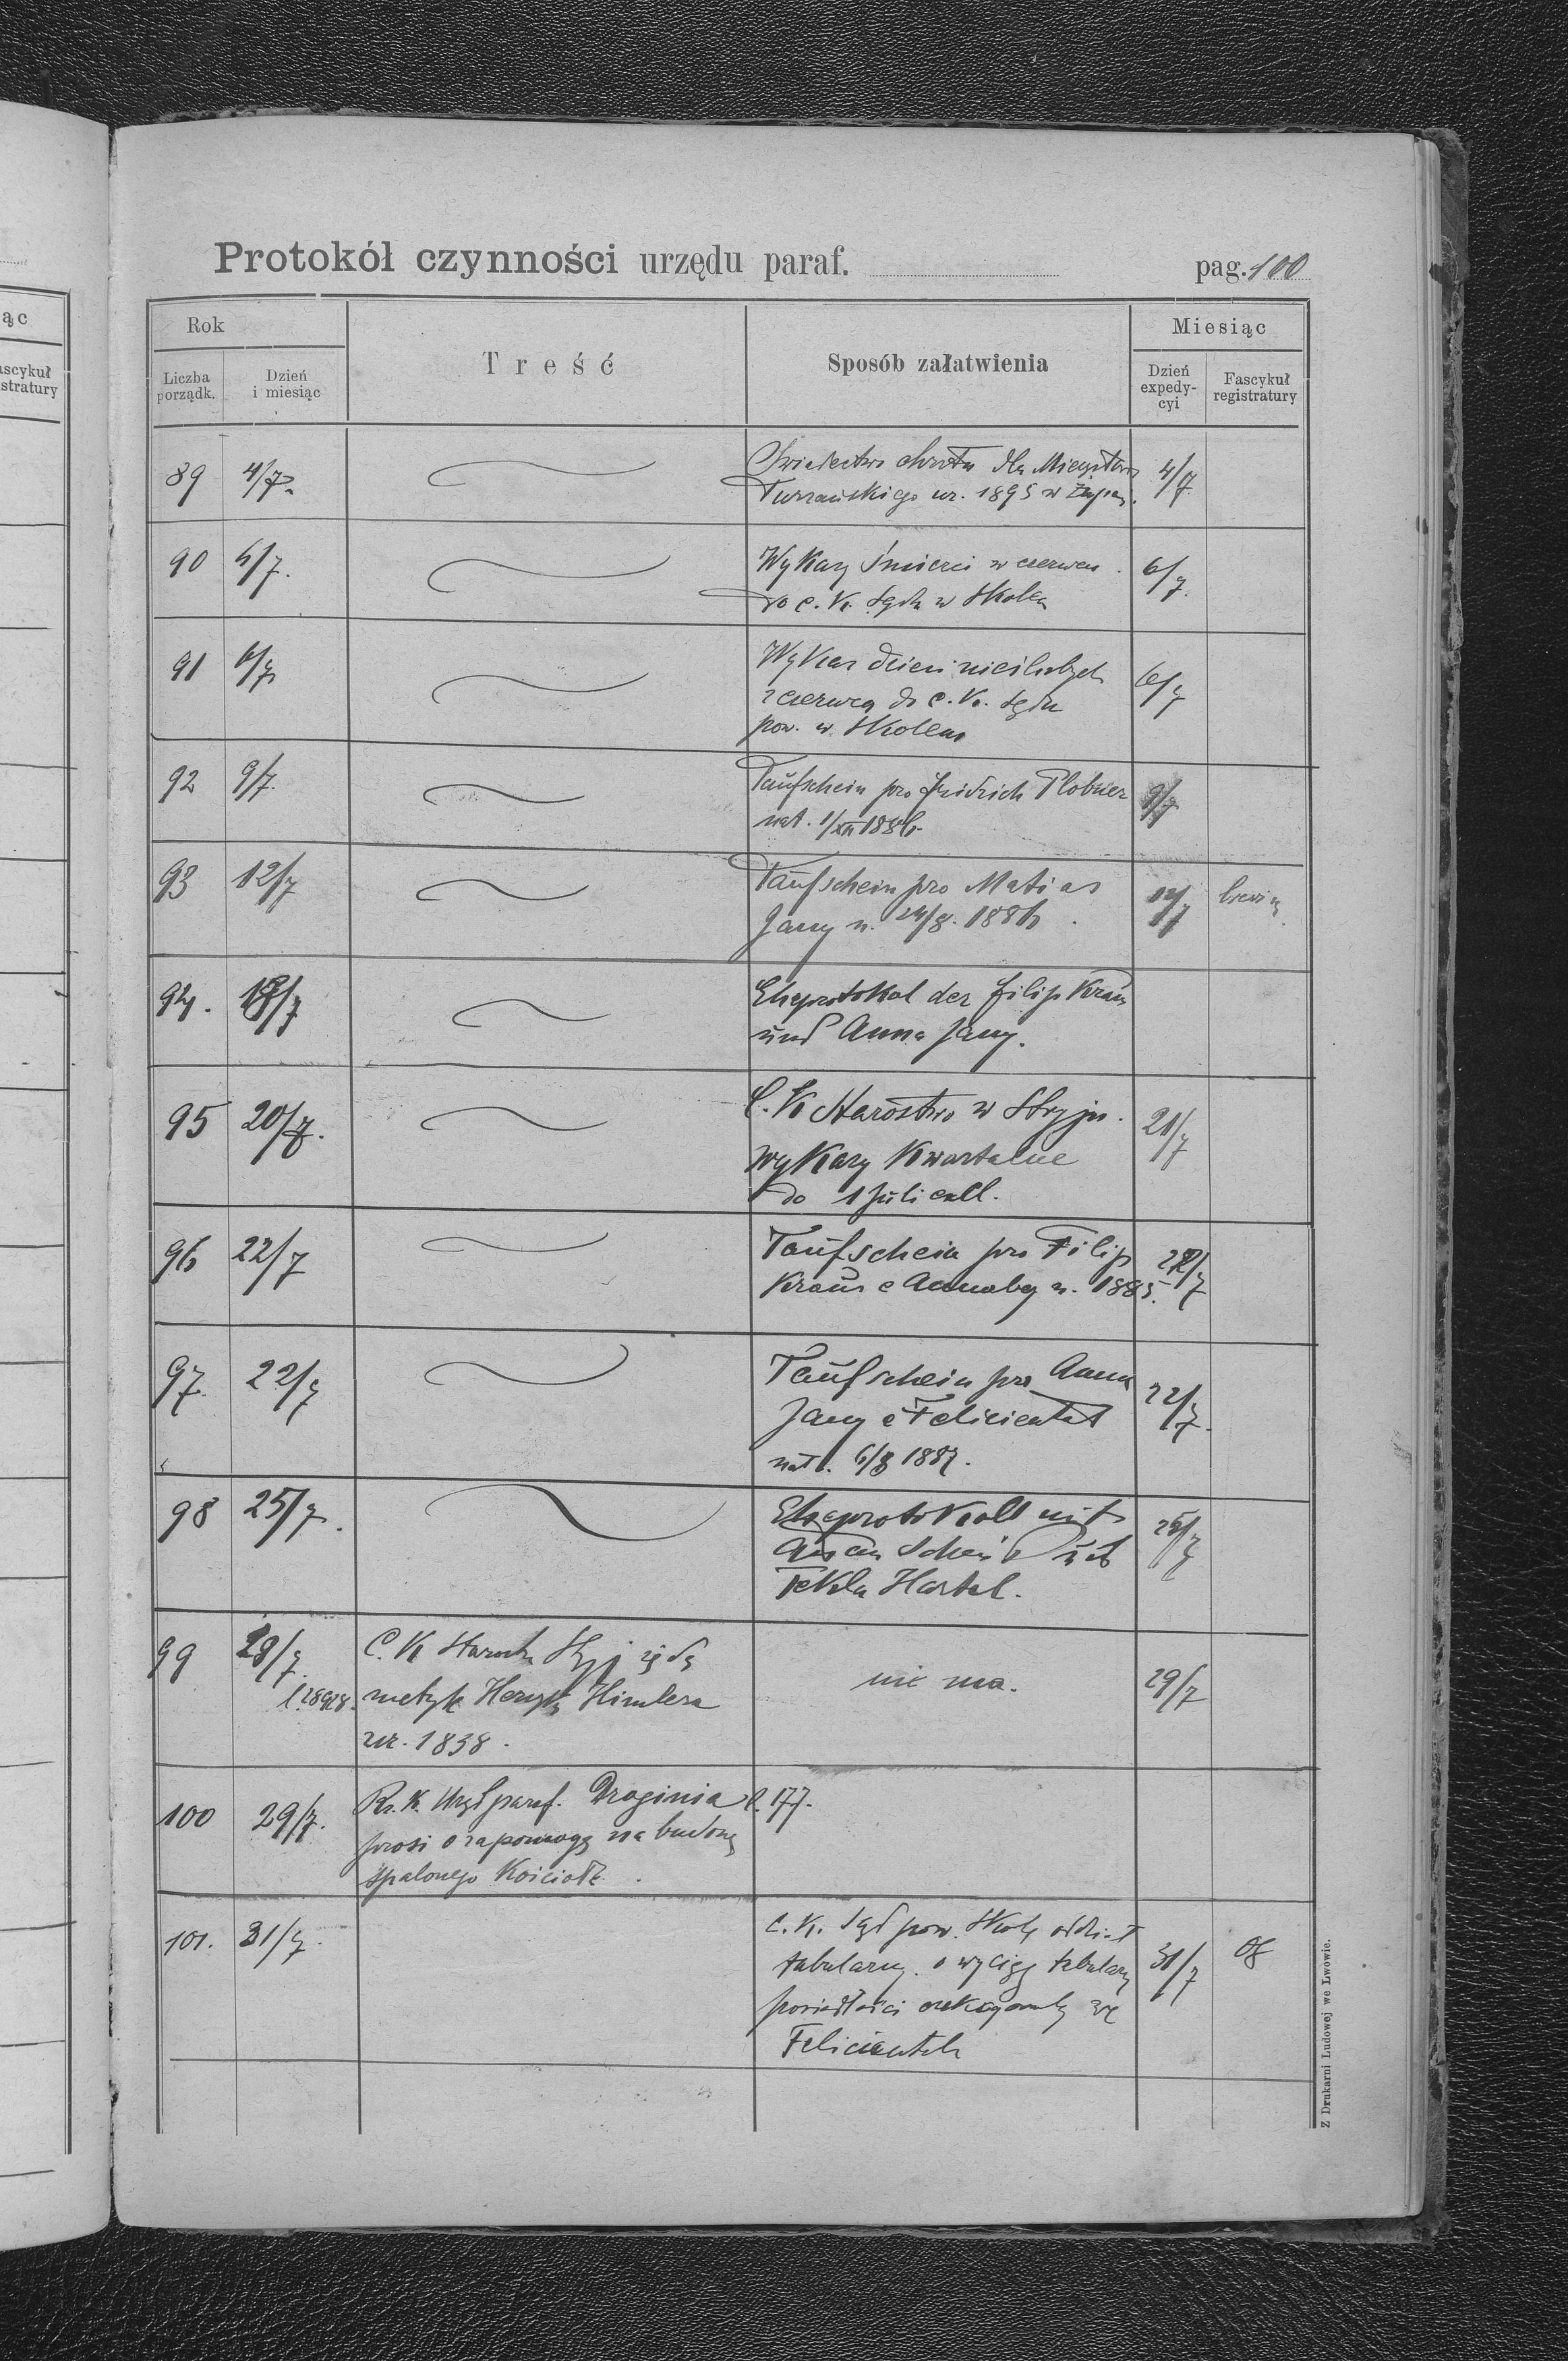 ąc
ascykuł
stratury
Protokół czynności urzędu paraf.
pag. 100
Rok
Treść
Sposób załatwienia
Miesiąc
Liczba porządk.
Dzień i miesiąc
Dzień expedy-cyi
Fascykuł registratury
89 4/7
Świadectwo chrztu dla
Turzańskiego ur. 1895 w
4/7
90 5/7.
Wykazy śmierci w czerwcu
do c. k. Sądu w Skolem
6/7.
91 6/7
Wykaz dzieci nieślubnych
z czerwca do c. k. Sądu
pow. w Skolem
6/7
92 9/7.
Taufschein pro Fridrich
nat. 1/XII 1886.
9/7
93 12/7
Taufschein pro Matias
Jany n. 24/8. 1886.
12/7
94. 18/7
Eheprotokol der Filip Kraus
und Anna Jany.
95 20/7.
C. K Starostwo w Stryju.
wykazy kwartalne
do 1 Juli
21/7
96 22/7
Taufschein pro Filip
Kraus e Annaberg n. 1885.
22/7
97. 22/7
Taufschein pro Anna
Jany e Felicienthal
nat. 6/8 1887.
22/7.
98 25/7.
Eheprotokoll mit
Tekla Hartel.
25/7
99 29/7.
l. 28928.
C. K Starostwo Stryj żąda
metryk Henryk Himlera
ur. 1838.
nie ma.
29/7
100 29/7.
Rz. K. Urząd paraf. Droginia l. 177.
prosi o zapomogę na budowę
spalonego Kościoła.
101. 31/7.
c. k. Sąd pow. Skole oddział
tabularny. o wyciąg tabularny
posiadłości
Felicienthal
31/7
Z Drukarni Ludowej we Lwowie.